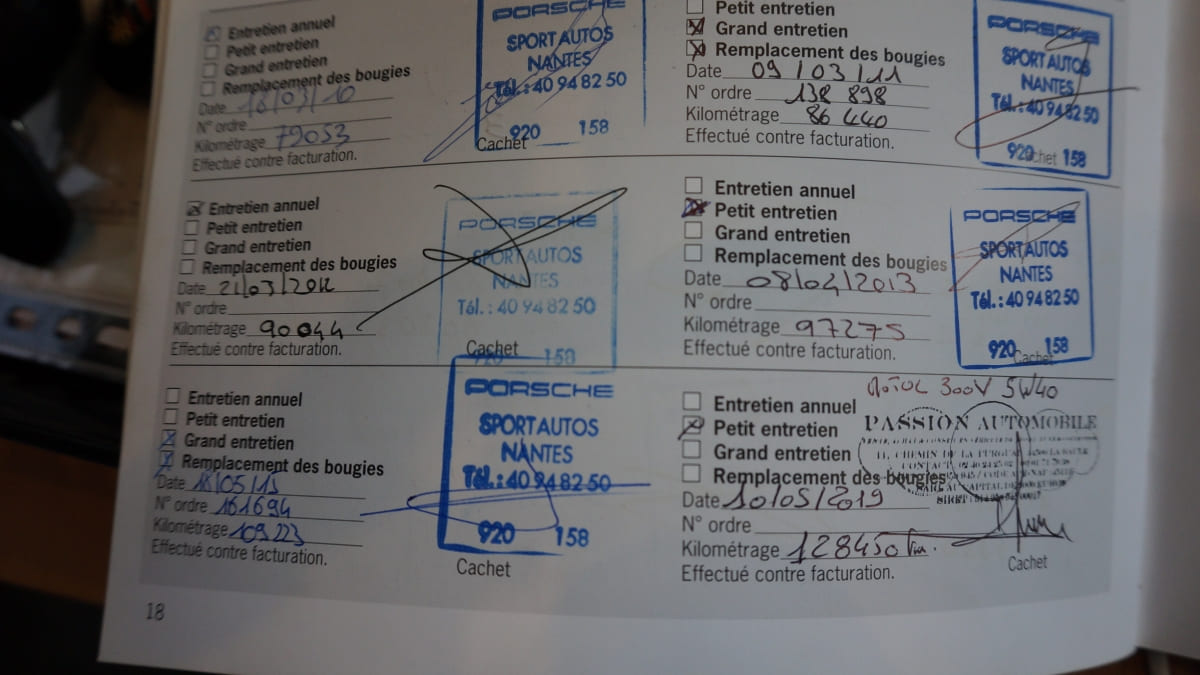 Entretien annuel
Petit entretien
Grand entretien
Remplacement des bougies
Date 16/03/10
N° ordre
Kilométrage 79053
Effectué contre facturation.
PORSCHE
SPORT AUTOS
NANTES
Tél.: 40 94 82 50
920 158
Cachet
Petit entretien
Grand entretien
Remplacement des bougies
Date 09/03/11
N° ordre 138 898
Kilométrage 86 440
Effectué contre facturation.
PORSCHE
SPORT AUTOS
NANTES
Tél.: 40 94 82 50
920 158
Cachet
Entretien annuel
Petit entretien
Grand entretien
Remplacement des bougies
Date 21/03/2012
N° ordre
Kilométrage 90044
Effectué contre facturation.
PORSCHE
SPORT AUTOS
NANTES
Tél.: 40 94 82 50
Cachet
920 158
Entretien annuel
Petit entretien
Grand entretien
Remplacement des bougies
Date 08/04/2013
N° ordre
Kilométrage 97275
Effectué contre facturation.
PORSCHE
SPORT AUTOS
NANTES
Tél.: 40 94 82 50
920 158
Cachet
Entretien annuel
Petit entretien
Grand entretien
Remplacement des bougies
Date 18/05/15
N° ordre 161694
Kilométrage 109223
Effectué contre facturation.
PORSCHE
SPORT AUTOS
NANTES
Tél.: 40 94 82 50
920 158
Cachet
MOTUL 300V 5W40
Entretien annuel
Petit entretien
Grand entretien
Remplacement des bougies
Date 10/05/2019
N° ordre
Kilométrage 128450 km.
Effectué contre facturation.
PASSION AUTOMOBILE
11, CHEMIN DE LA
CONTACT
SIRET
Cachet
18